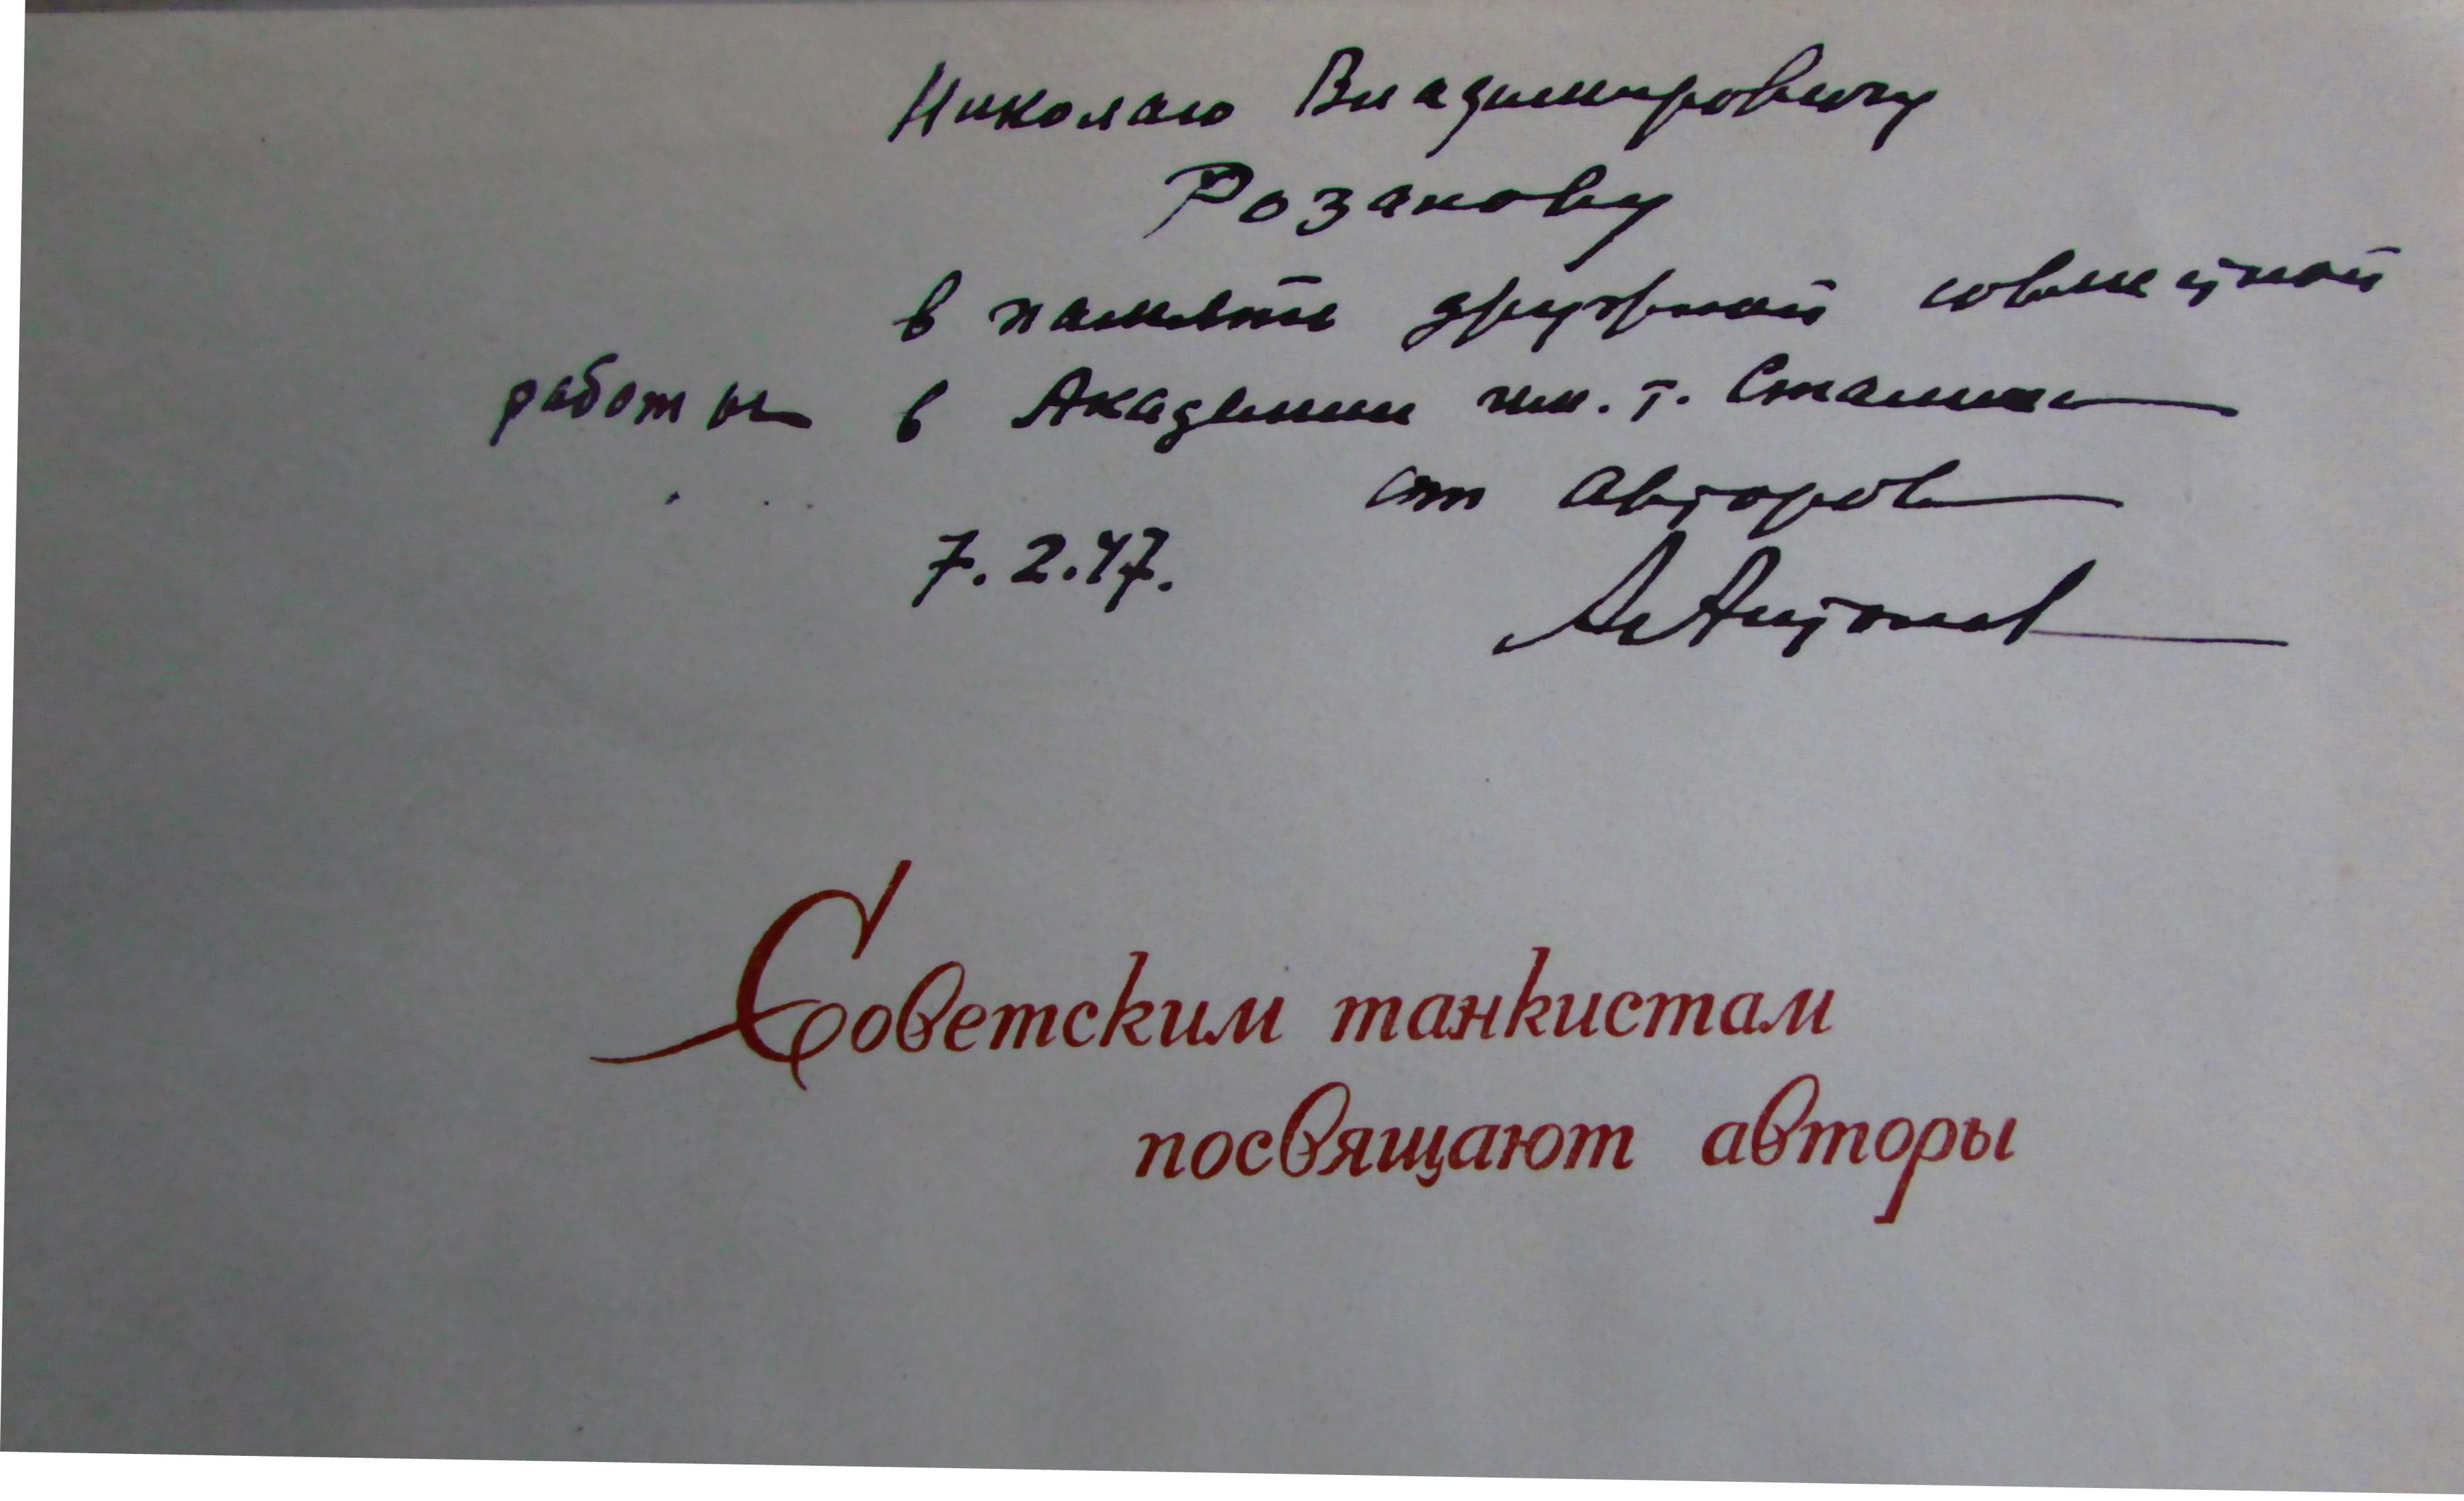 Николаю Владимировичу
Розанову
в память дружной совместной
работы в Академии им. т. Сталина
от авторов
7.2.47.
А Антонов
Советским танкистам
посвящают авторы